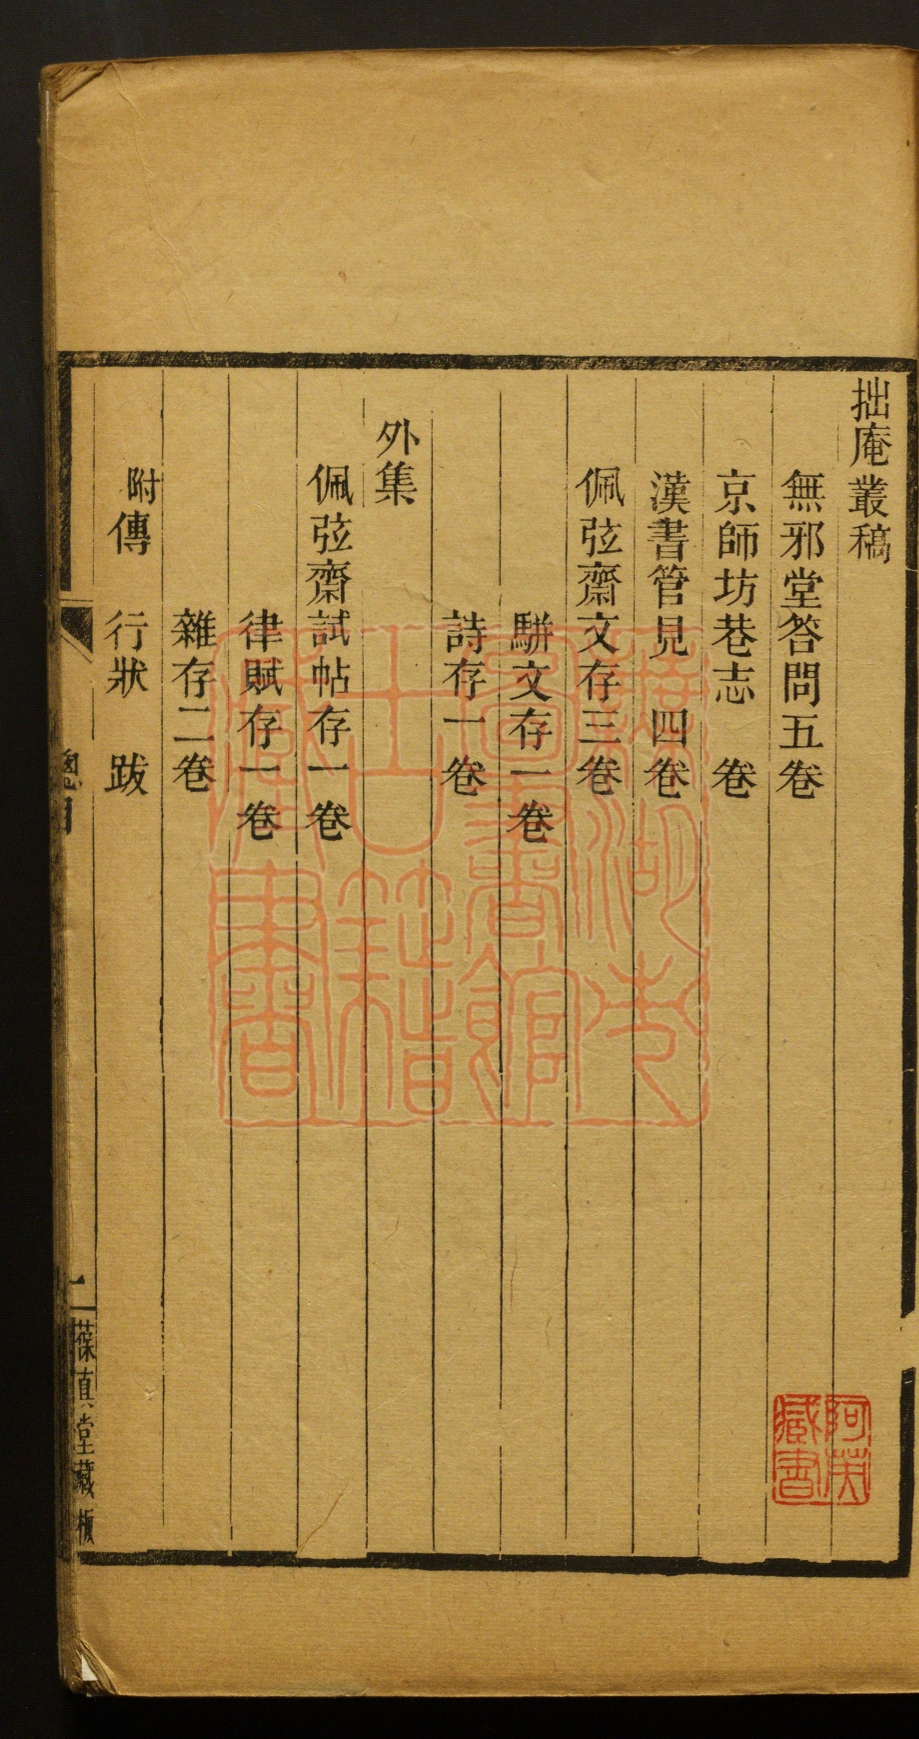 拙庵叢稿
無邪堂答問五卷
京師坊巷志　卷
漢書管見　四卷
佩弦齋文存三卷
駢文存一卷
詩存一卷
外集
佩弦齋試帖存一卷
律賦存一卷
雜存二卷
附傳　行狀　跋
總目
葆真堂藏板
阿英藏書
蕪湖市圖書館古籍藏書